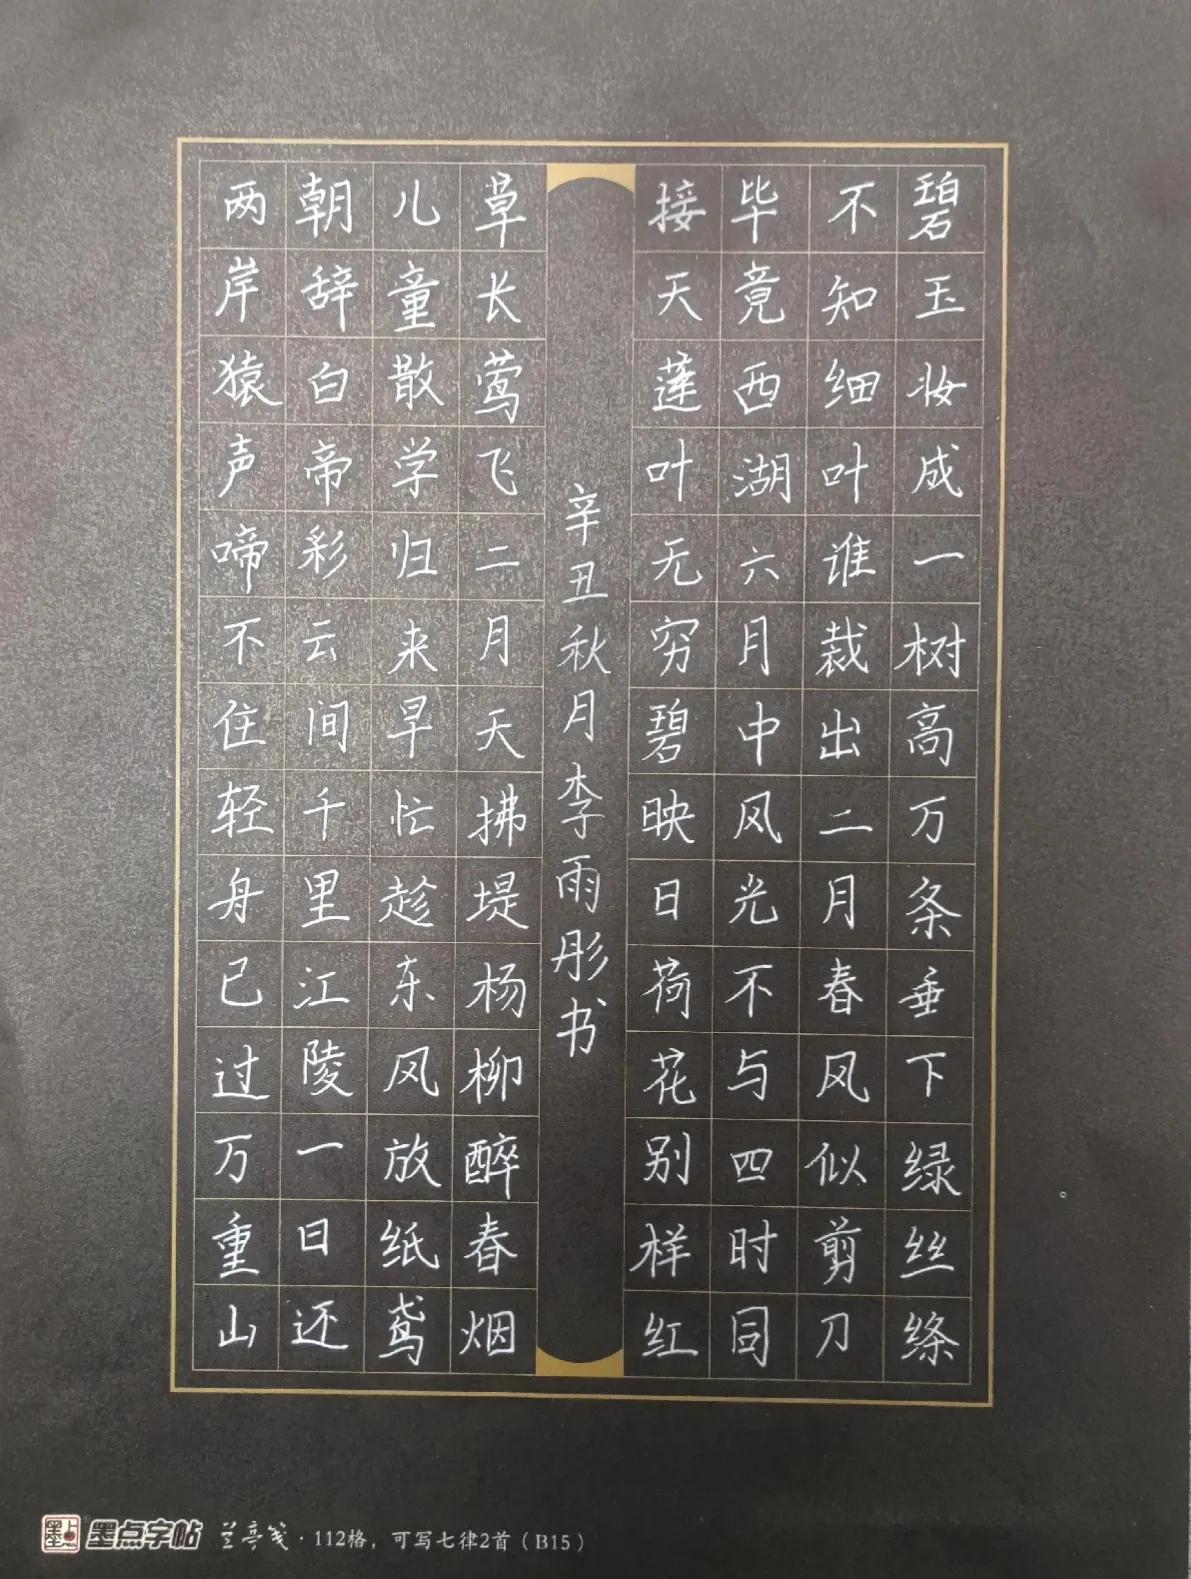 碧玉妆成一树高万条垂下绿丝绦
不知细叶谁裁出二月春风似剪刀
毕竟西湖六月中风光不与四时同
接天莲叶无穷碧映日荷花别样红
辛丑秋月李雨彤书
草长莺飞二月天拂堤杨柳醉春烟
儿童散学归来早忙趁东风放纸鸢
朝辞白帝彩云间千里江陵一日还
两岸猿声啼不住轻舟已过万重山
墨点字帖 兰亭笺·112格，可写七律2首（B15）